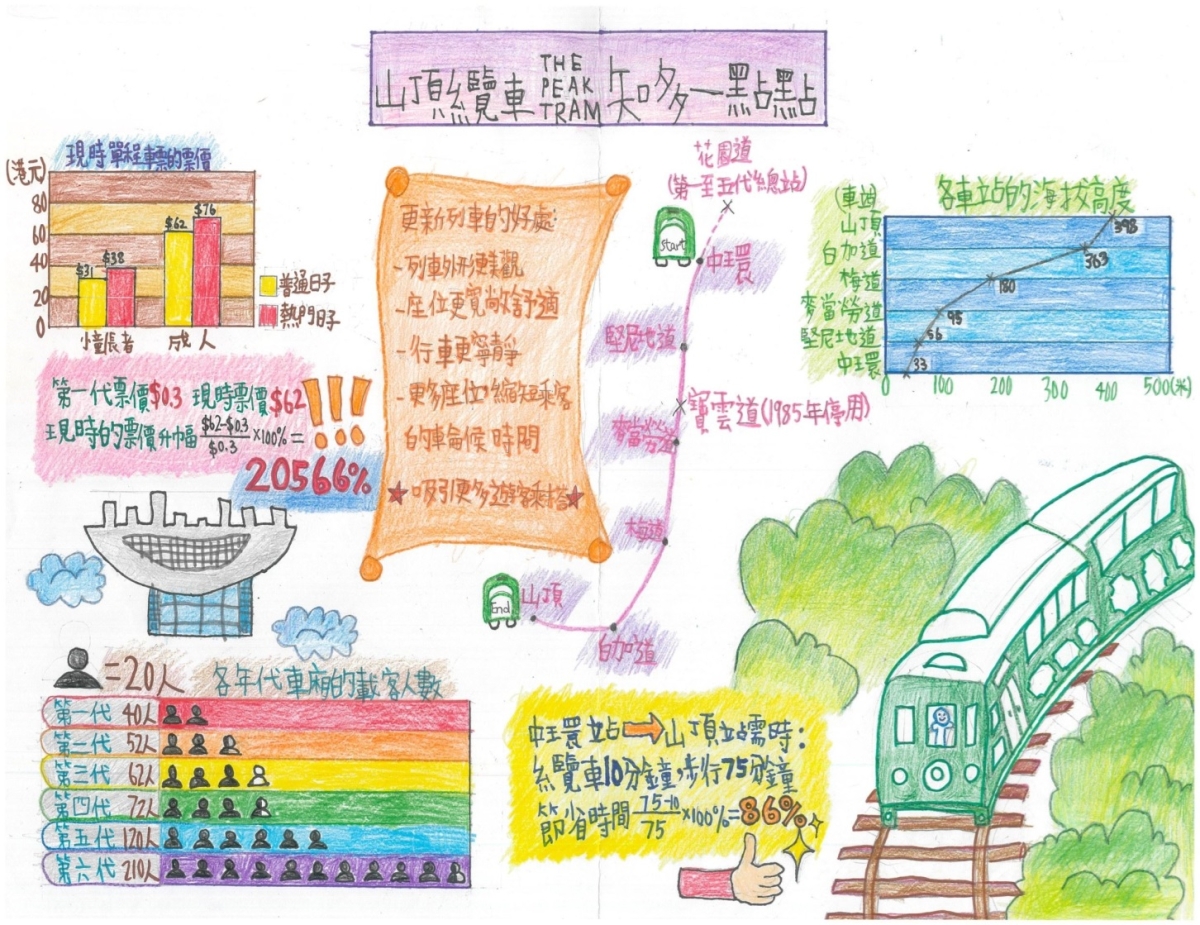 山頂纜車 THE PEAK TRAM 知多一點點
現時單程車票的票價
(港元)
80
60
40
20
0
$31
$38
$62
$76
小童長者
成人
普通日子
熱門日子
第一代票價$0.3 現時票價$62
現時的票價升幅 $62-$0.3 / $0.3 ×100%=
20566%
!!!
更新列車的好處:
-列車外形更美觀
-座位更寬敞舒適
-行車更寧靜
-更多座位,縮短乘客
的輪候時間
★吸引更多遊客乘搭★
花園道
(第一至五代總站)
Start
中環
堅尼地道
寶雲道(1985年停用)
麥當勞道
梅道
白加道
山頂
End
各車站的海拔高度
(車站)
山頂
白加道
梅道
麥當勞道
堅尼地道
中環
398
363
180
95
56
33
0 100 200 300 400 500(米)
=20人 各年代車廂的載客人數
第一代 40人
第二代 52人
第三代 62人
第四代 72人
第五代 120人
第六代 210人
中環站→山頂站需時:
纜車10分鐘,步行75分鐘
節省時間 75-10 / 75 ×100%=86%